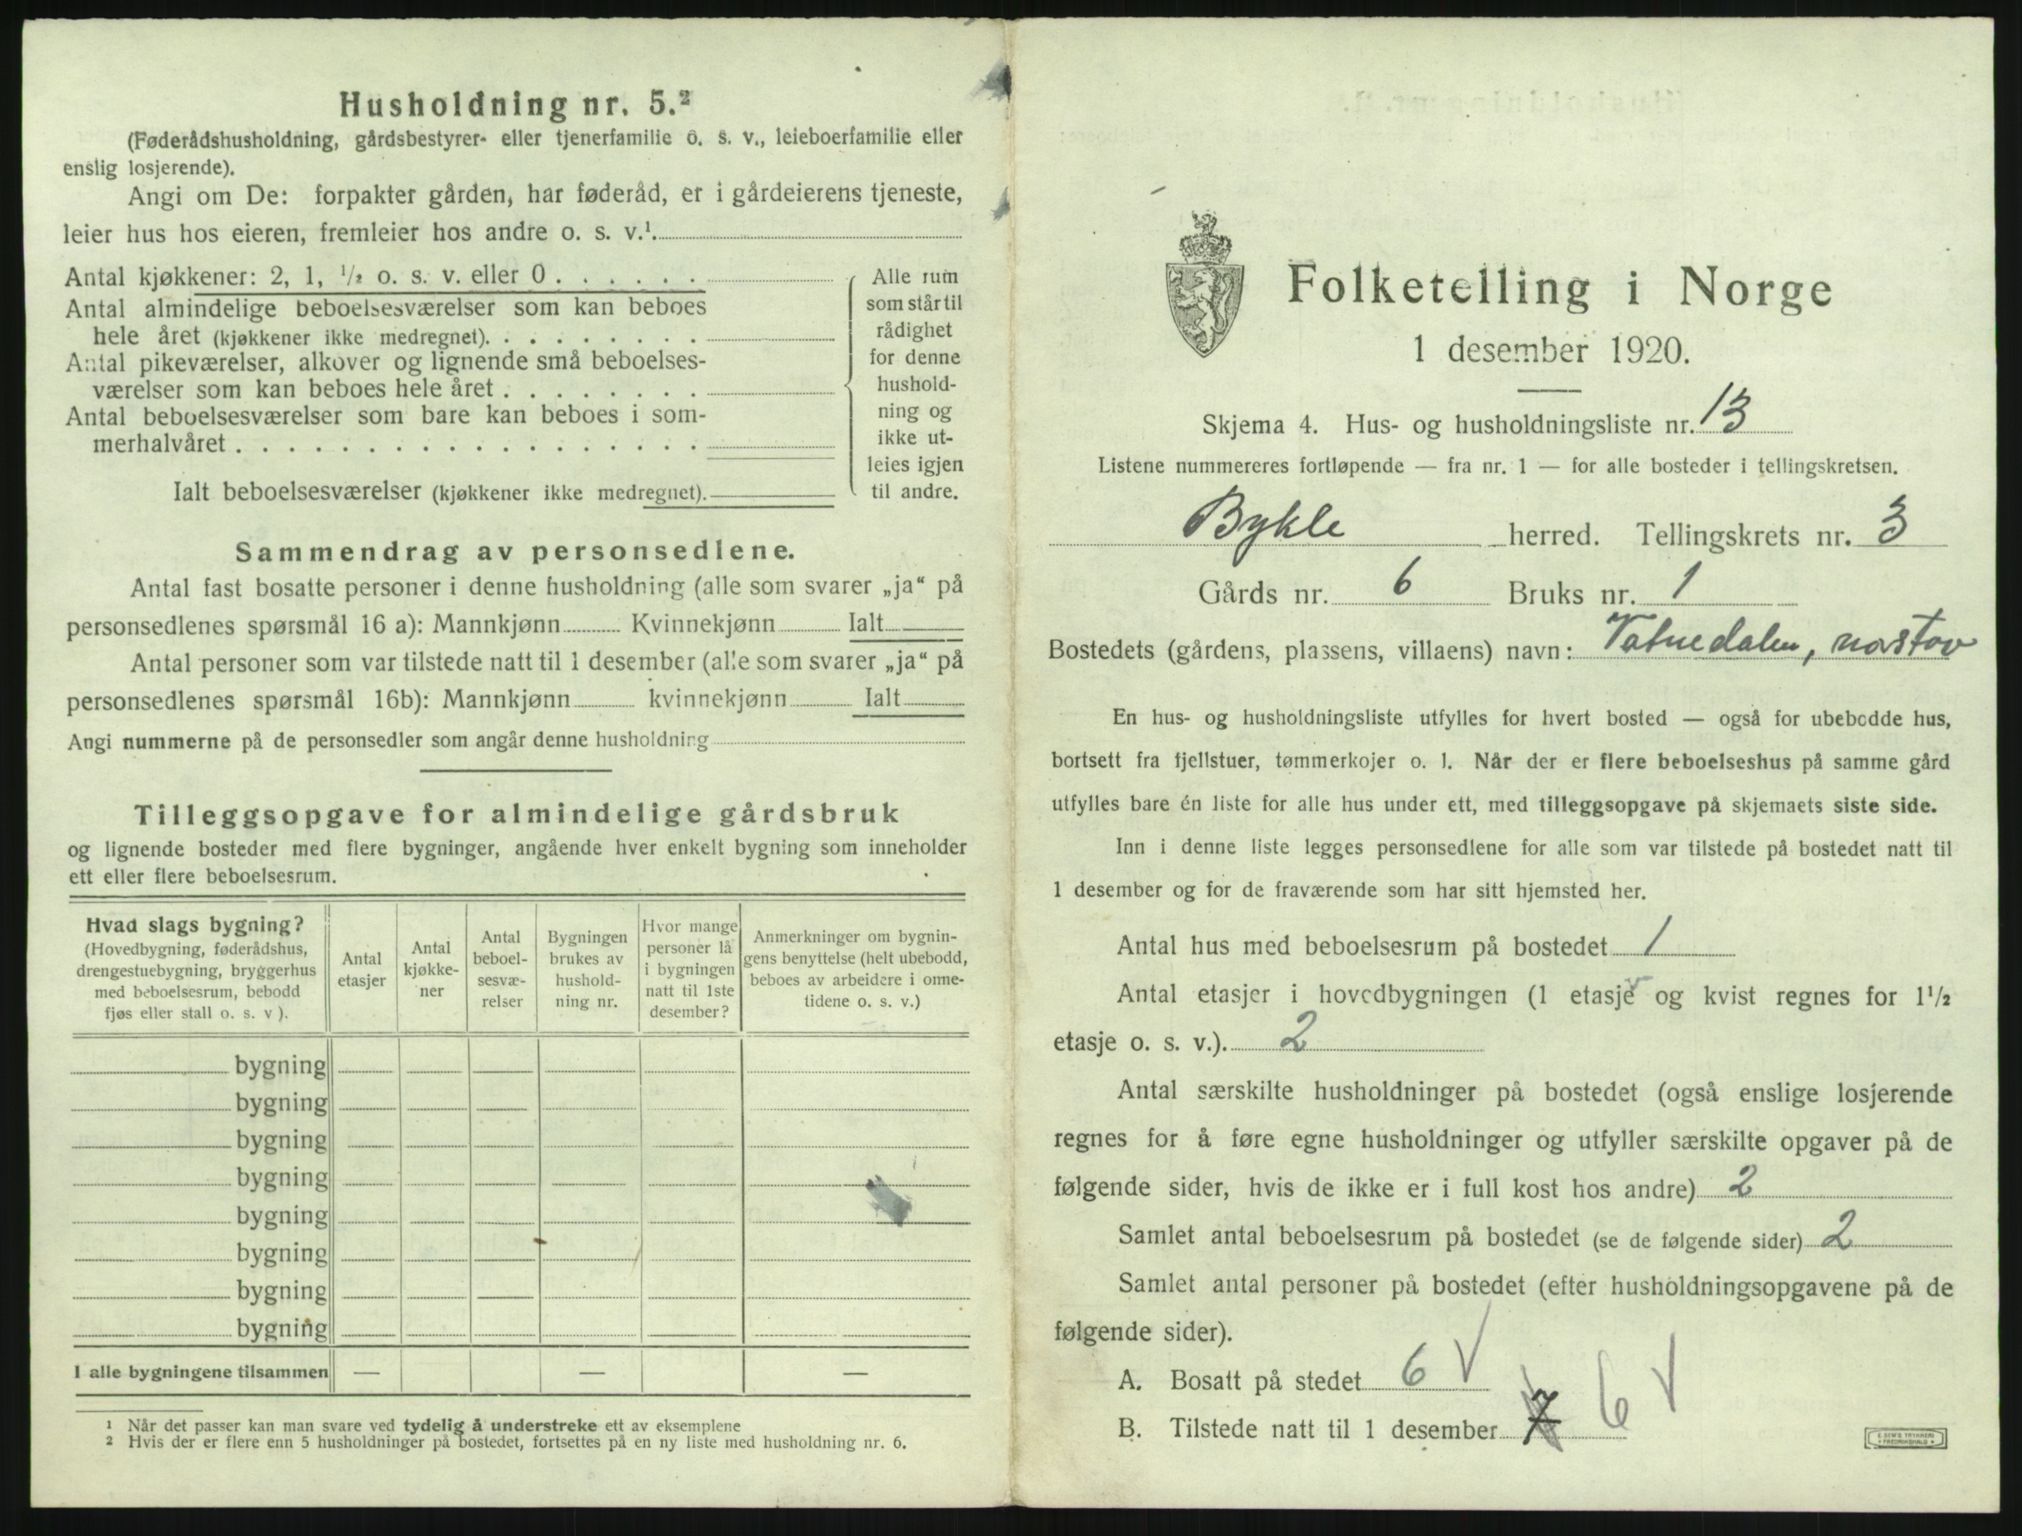 Husholdning nr. 5.²
(Føderådshusholdning, gårdsbestyrer- eller tjenerfamilie o. s. v., leieboerfamilie eller
enslig losjerende).
Angi om De: forpakter gården, har føderåd, er i gårdeierens tjeneste,
leier hus hos eieren, fremleier hos andre o. s. v.¹
Antal kjøkkener: 2, 1, ½ o. s. v. eller 0 . . . . . .
Antal almindelige beboelsesværelser som kan beboes
hele året (kjøkkener ikke medregnet). . . . . . . . .
Antal pikeværelser, alkover og lignende små beboelses-
værelser som kan beboes hele året . . . . . . . .
Antal beboelsesværelser som bare kan beboes i som-
merhalvåret . . . . . . . . . . . . . . . . . .
Ialt beboelsesværelser (kjøkkener ikke medregnet).
Alle rum
som står til
rådighet
for denne
hushold-
ning og
ikke ut-
leies igjen
til andre.
Sammendrag av personsedlene.
Antal fast bosatte personer i denne husholdning (alle som svarer „ja“ på
personsedlenes spørsmål 16 a): Mannkjønn Kvinnekjønn Ialt
Antal personer som var tilstede natt til 1 desember (alle som svarer „ja“ på
personsedlenes spørsmål 16b): Mannkjønn kvinnekjønn Ialt
Angi nummerne på de personsedler som angår denne husholdning
Tilleggsopgave for almindelige gårdsbruk
og lignende bosteder med flere bygninger, angående hver enkelt bygning som inneholder
ett eller flere beboelsesrum.
Hvad slags bygning?
(Hovedbygning, føderådshus,
drengestuebygning, bryggerhus
med beboelsesrum, bebodd
fjøs eller stall o. s. v ).
Antal
etasjer
Antal
kjøkke-
ner
Antal
beboel-
sesvæ-
relser
Bygningen
brukes av
hushold-
ning nr.
Hvor mange
personer lå
i bygningen
natt til 1ste
desember?
Anmerkninger om bygnin-
gens benyttelse (helt ubebodd,
beboes av arbeidere i onne-
tidene o. s. v.)
bygning
bygning
bygning
bygning
bygning
bygning
bygning
bygning
I alle bygningene tilsammen — — —
¹ Når det passer kan man svare ved tydelig å understreke ett av eksemplene
² Hvis der er flere enn 5 husholdninger på bostedet, fortsettes på en ny liste med husholdning nr. 6.
Folketelling i Norge
1 desember 1920.
Skjema 4. Hus- og husholdningsliste nr. 13
Listene nummereres fortløpende — fra nr. 1 — for alle bosteder i tellingskretsen.
Bykle herred. Tellingskrets nr. 3
Gårds nr. 6 Bruks nr. 1
Bostedets (gårdens, plassens, villaens) navn: Vatnedalen, norstov
En hus- og husholdningsliste utfylles for hvert bosted — også for ubebodde hus,
bortsett fra fjellstuer, tømmerkojer o. l. Når der er flere beboelseshus på samme gård
utfylles bare én liste for alle hus under ett, med tilleggsopgave på skjemaets siste side.
Inn i denne liste legges personsedlene for alle som var tilstede på bostedet natt til
1 desember og for de fraværende som har sitt hjemsted her.
Antal hus med beboelsesrum på bostedet 1
Antal etasjer i hovedbygningen (1 etasje og kvist regnes for 1½
etasje o. s. v.). 2
Antal særskilte husholdninger på bostedet (også enslige losjerende
regnes for å føre egne husholdninger og utfyller særskilte opgaver på de
følgende sider, hvis de ikke er i full kost hos andre) 2
Samlet antal beboelsesrum på bostedet (se de følgende sider) 2
Samlet antal personer på bostedet (efter husholdningsopgavene på de
følgende sider).
A. Bosatt på stedet 6 V
B. Tilstede natt til 1 desember 7 6 V
E. SEM'S TRYKKERI
FREDRIKSHALD